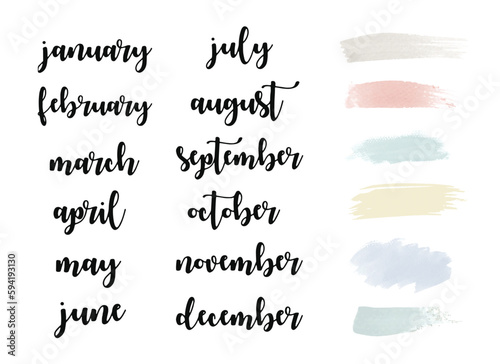 january
february
march
april
may
june
july
august
september
october
november
december
Adobe Stock | #594193130